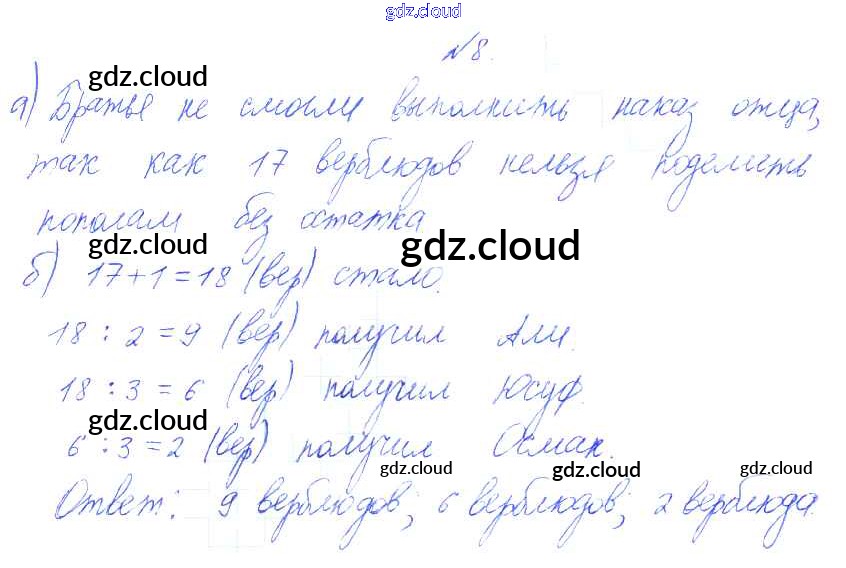 gdz.cloud
№8.
gdz.cloud
а) Братья не смогли выполнить наказ отца,
так как 17 верблюдов нельзя поделить
пополам без остатка
gdz.cloud
gdz.cloud
б) 17+1=18 (вер) стало.
18 : 2 = 9 (вер) получил Али.
18 : 3 = 6 (вер) получил Юсуф.
gdz.cloud
6 : 3 = 2 (вер) получил Осман.
gdz.cloud
gdz.cloud
gdz.cloud
Ответ: 9 верблюдов; 6 верблюдов; 2 верблюда.